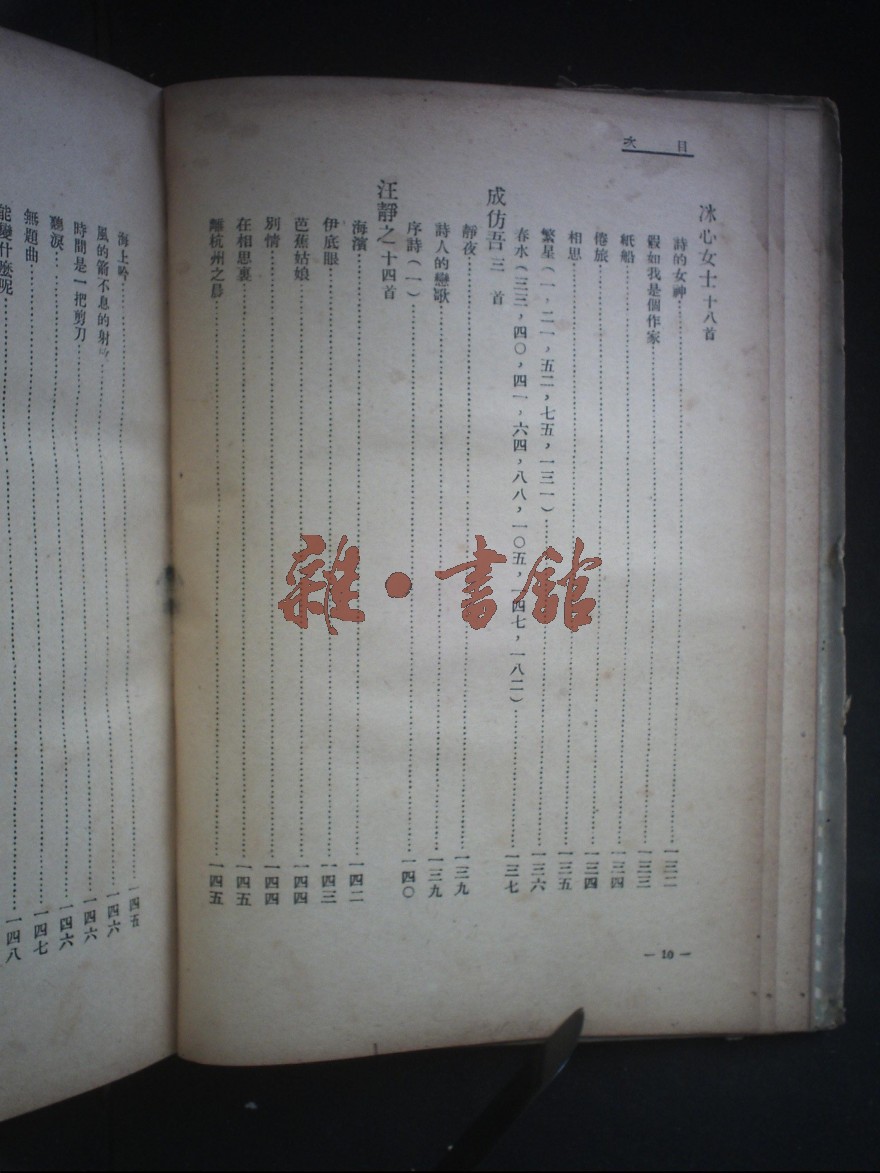 目次
冰心女士 十八首
詩的女神……一三二
假如我是個作家……一三三
紙船……一三四
倦旅……一三四
相思……一三五
繁星(一,二一,五二,七五,一三一)……一三六
春水(三三,四〇,四一,六四,八八,一〇五,一四七,一八二)……一三七
成仿吾 三首
靜夜……一三九
詩人的戀歌……一三九
序詩(一)……一四〇
汪靜之 十四首
海濱……一四二
伊底眼……一四三
芭蕉姑娘……一四四
別情……一四四
在相思裏……一四五
離杭州之晨……一四五
— 10 —
海上吟……一四五
風的箭不息的射……一四六
時間是一把剪刀……一四六
聽淚……一四六
無題曲……一四七
能變什麼呢……一四八
雜·書館